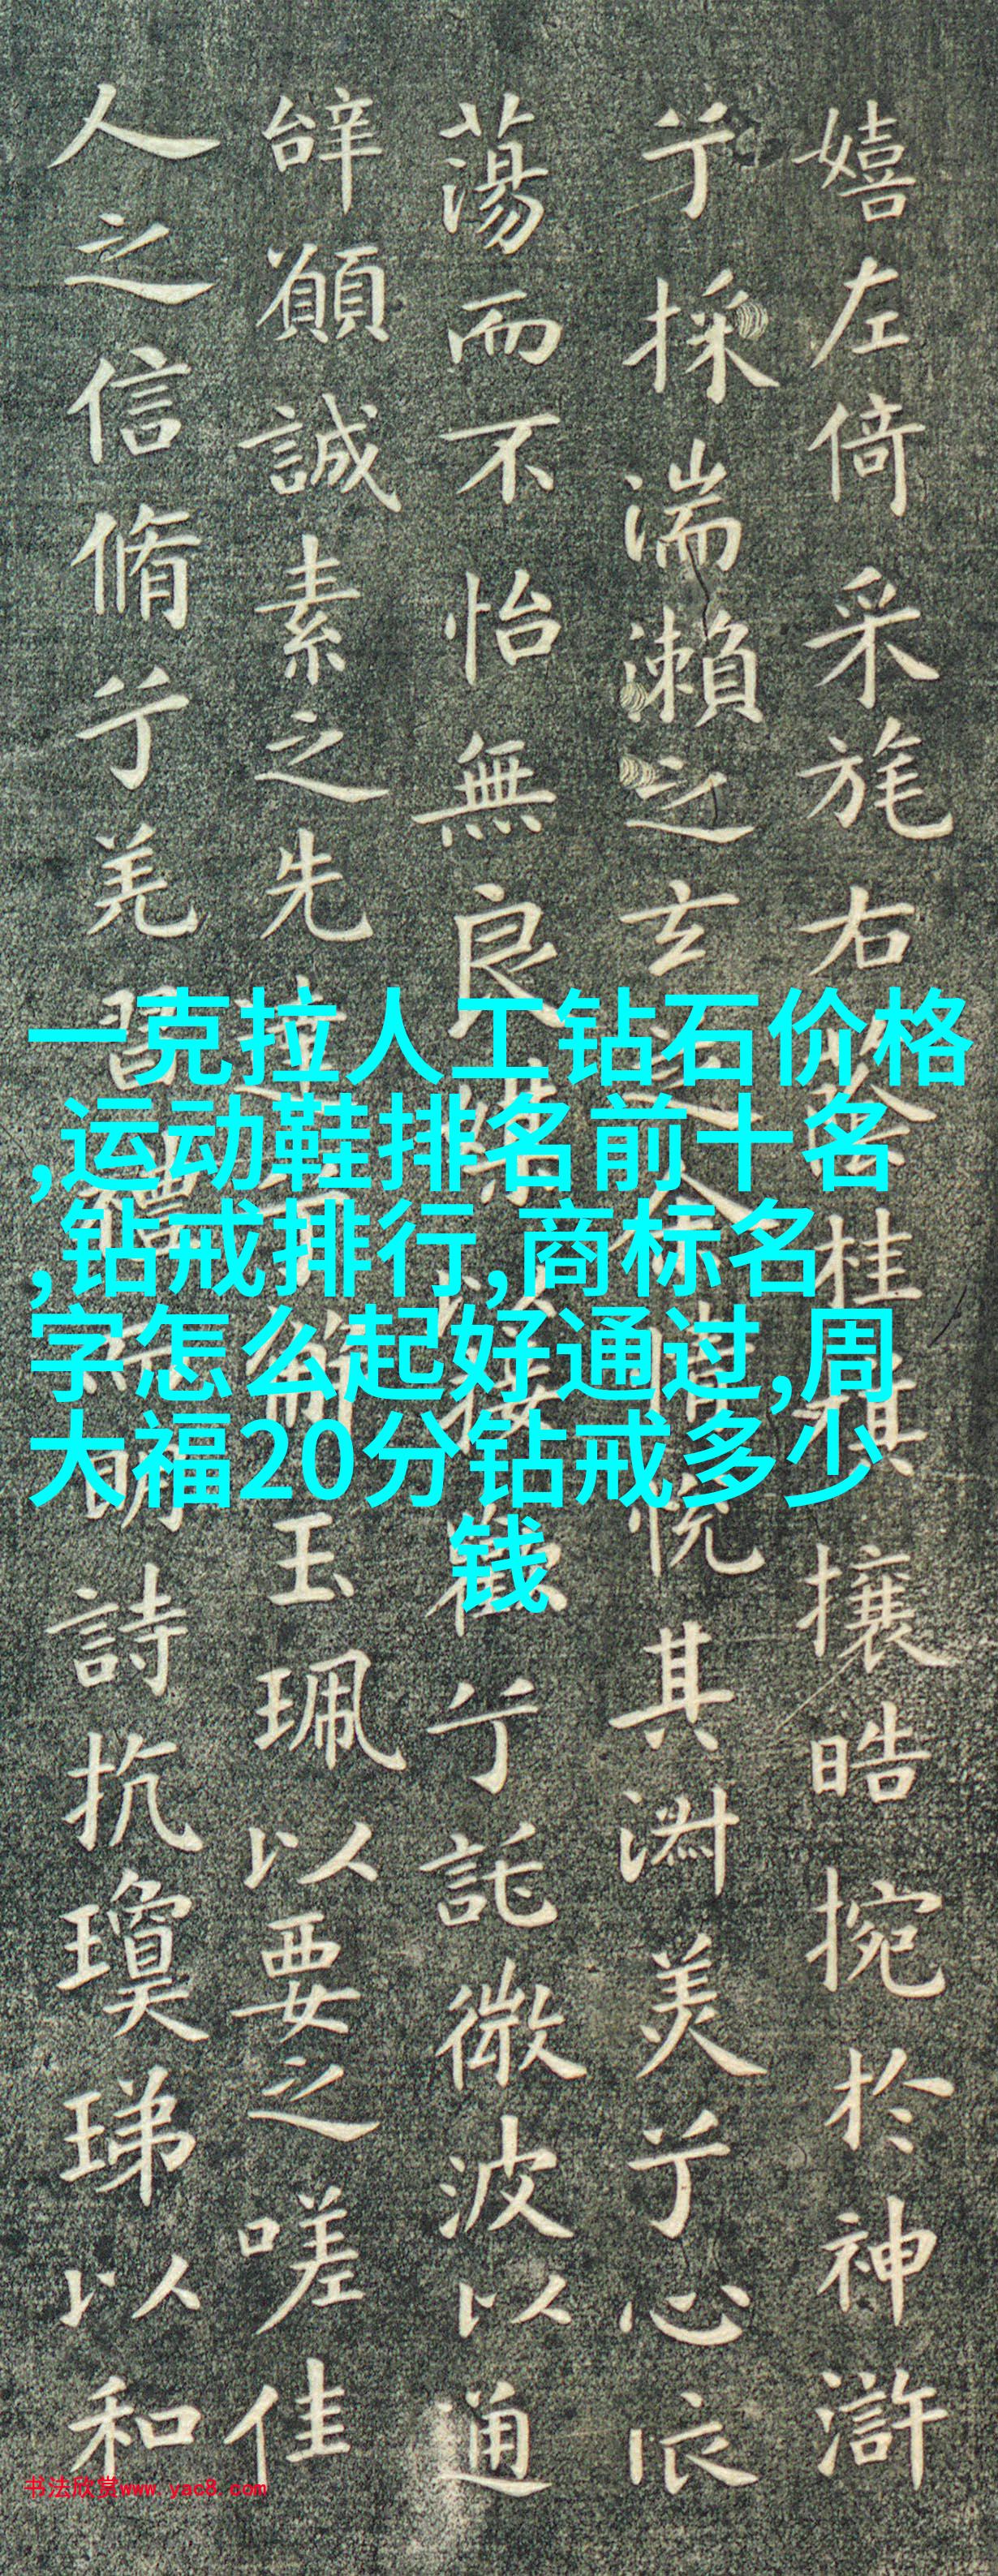 嬉左倚采旄右蔭桂旗攘皓捥於神滸
兮採湍瀨之玄芝余情悅其淵美兮心
蕩而不怡無良媒以接歡兮託微波以通
辭願誠素之先達兮解玉珮以要之嗟佳
人之信脩兮羌習禮而明詩抗瓊珶以和
一克拉人工钻石价格
,运动鞋排名前十名
,钻戒排行,商标名
字怎么起好通过,周
大福20分钻戒多少
钱
书法欣赏www.yac8.com